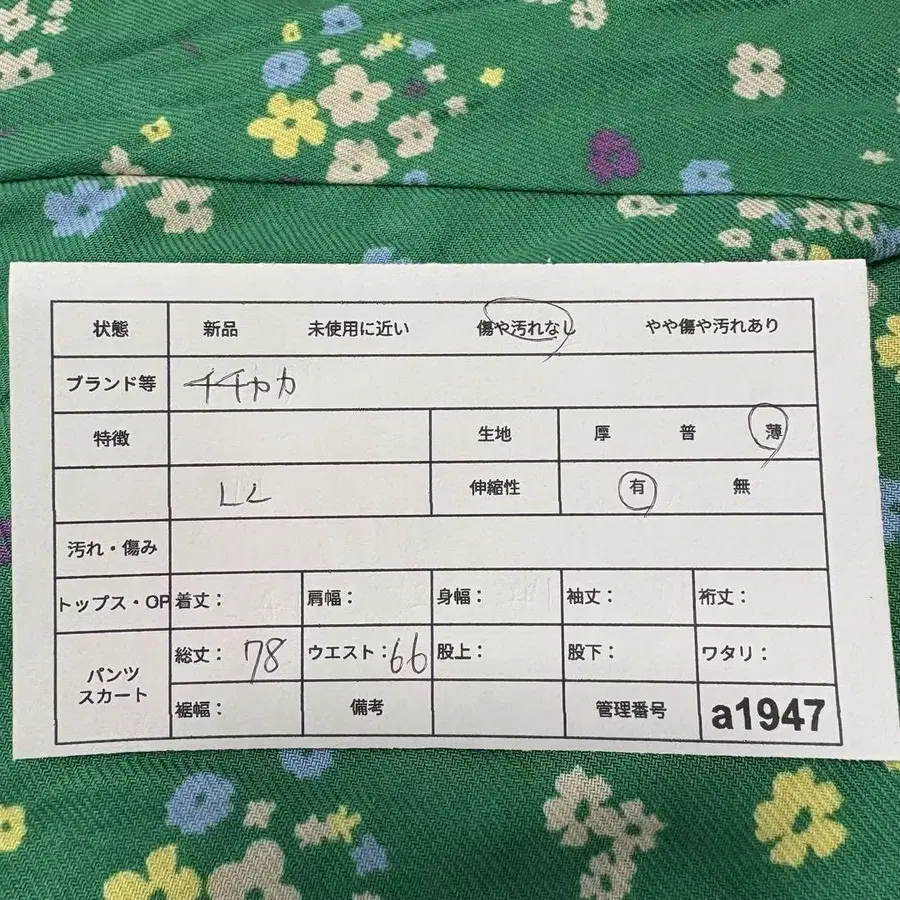 状態 新品 未使用に近い 傷や汚れなし やや傷や汚れあり
ブランド等 チチカカ
特徴 生地 厚 普 薄
LL 伸縮性 有 無
汚れ・傷み
トップス・OP 着丈： 肩幅： 身幅： 袖丈： 裄丈：
パンツ スカート 総丈：78 ウエスト：66 股上： 股下： ワタリ：
裾幅： 備考 管理番号 a1947